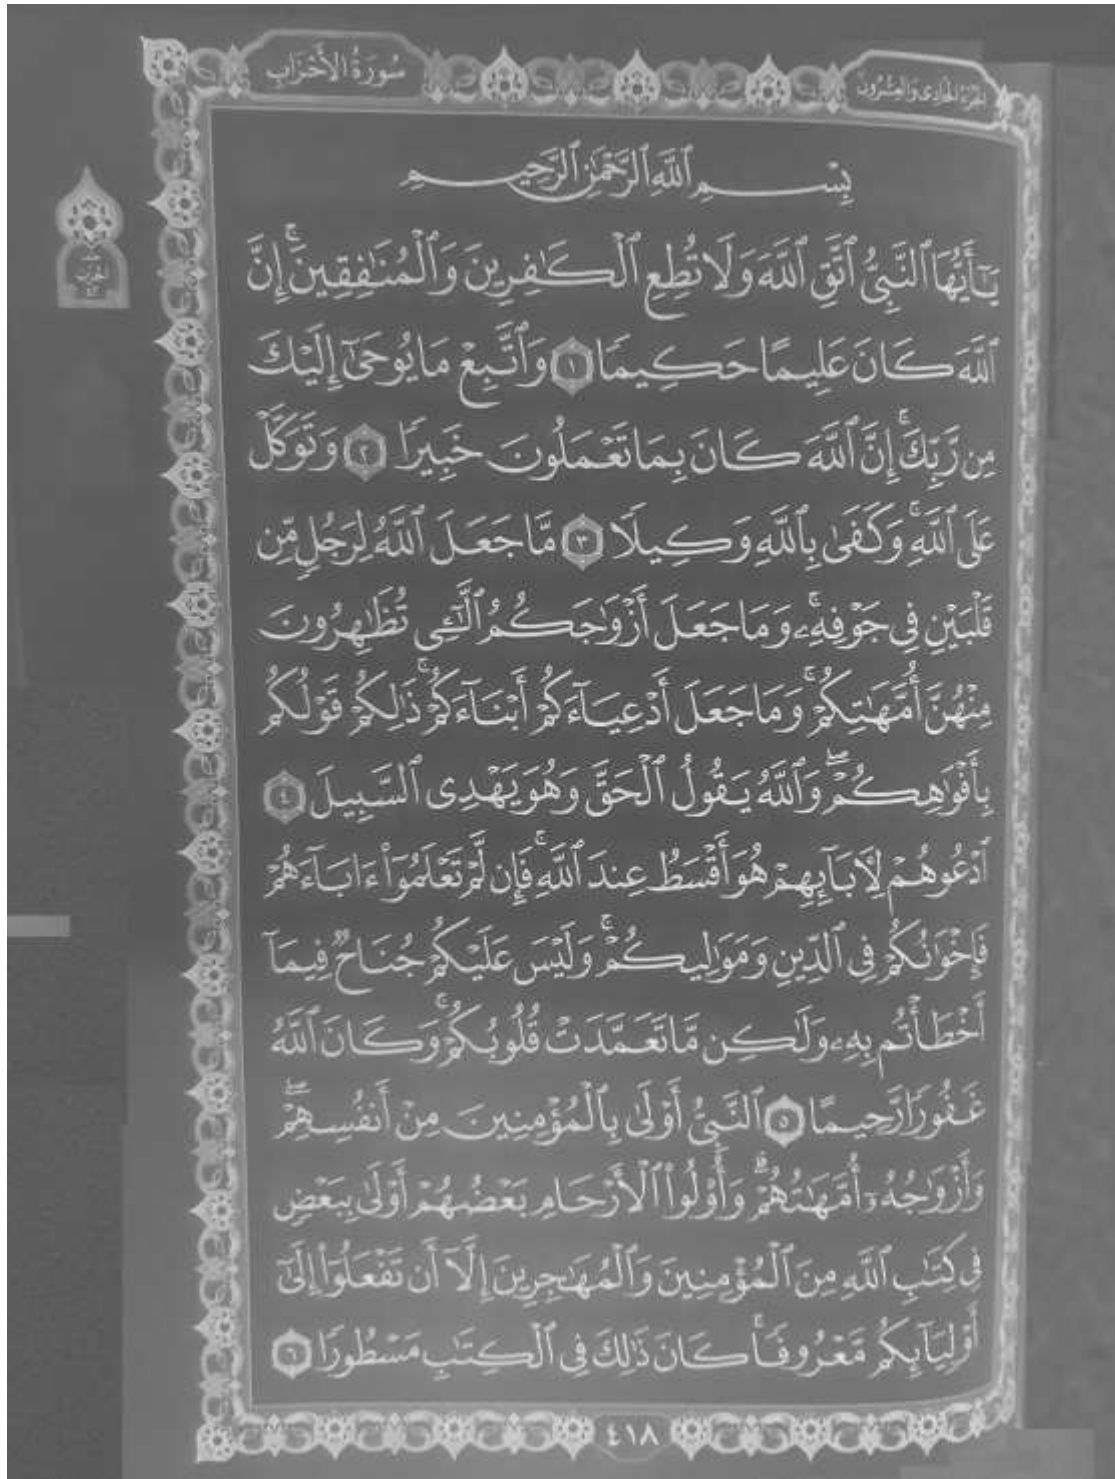 سُورَةُ الأَحْزَابِ
الجُزْءُ الحَادِى وَالعِشْرُونَ
بِسْمِ ٱللَّهِ ٱلرَّحْمَٰنِ ٱلرَّحِيمِ
يَـٰٓأَيُّهَا ٱلنَّبِىُّ ٱتَّقِ ٱللَّهَ وَلَا تُطِعِ ٱلْكَـٰفِرِينَ وَٱلْمُنَـٰفِقِينَۚ إِنَّ
ٱللَّهَ كَانَ عَلِيمًا حَكِيمًا ١ وَٱتَّبِعْ مَا يُوحَىٰٓ إِلَيْكَ
مِن رَّبِّكَۚ إِنَّ ٱللَّهَ كَانَ بِمَا تَعْمَلُونَ خَبِيرًا ٢ وَتَوَكَّلْ
عَلَى ٱللَّهِۚ وَكَفَىٰ بِٱللَّهِ وَكِيلًا ٣ مَّا جَعَلَ ٱللَّهُ لِرَجُلٍ مِّن
قَلْبَيْنِ فِى جَوْفِهِۦۚ وَمَا جَعَلَ أَزْوَٰجَكُمُ ٱلَّـٰٓـِٔى تُظَـٰهِرُونَ
مِنْهُنَّ أُمَّهَـٰتِكُمْۚ وَمَا جَعَلَ أَدْعِيَآءَكُمْ أَبْنَآءَكُمْۚ ذَٰلِكُمْ قَوْلُكُم
بِأَفْوَٰهِكُمْۖ وَٱللَّهُ يَقُولُ ٱلْحَقَّ وَهُوَ يَهْدِى ٱلسَّبِيلَ ٤
ٱدْعُوهُمْ لِـَٔابَآئِهِمْ هُوَ أَقْسَطُ عِندَ ٱللَّهِۚ فَإِن لَّمْ تَعْلَمُوٓا۟ ءَابَآءَهُمْ
فَإِخْوَٰنُكُمْ فِى ٱلدِّينِ وَمَوَٰلِيكُمْۚ وَلَيْسَ عَلَيْكُمْ جُنَاحٌ فِيمَآ
أَخْطَأْتُم بِهِۦ وَلَـٰكِن مَّا تَعَمَّدَتْ قُلُوبُكُمْۚ وَكَانَ ٱللَّهُ
غَفُورًا رَّحِيمًا ٥ ٱلنَّبِىُّ أَوْلَىٰ بِٱلْمُؤْمِنِينَ مِنْ أَنفُسِهِمْۖ
وَأَزْوَٰجُهُۥٓ أُمَّهَـٰتُهُمْۗ وَأُو۟لُوا۟ ٱلْأَرْحَامِ بَعْضُهُمْ أَوْلَىٰ بِبَعْضٍ
فِى كِتَـٰبِ ٱللَّهِ مِنَ ٱلْمُؤْمِنِينَ وَٱلْمُهَـٰجِرِينَ إِلَّآ أَن تَفْعَلُوٓا۟ إِلَىٰٓ
أَوْلِيَآئِكُم مَّعْرُوفًاۚ كَانَ ذَٰلِكَ فِى ٱلْكِتَـٰبِ مَسْطُورًا ٦
٤١٨